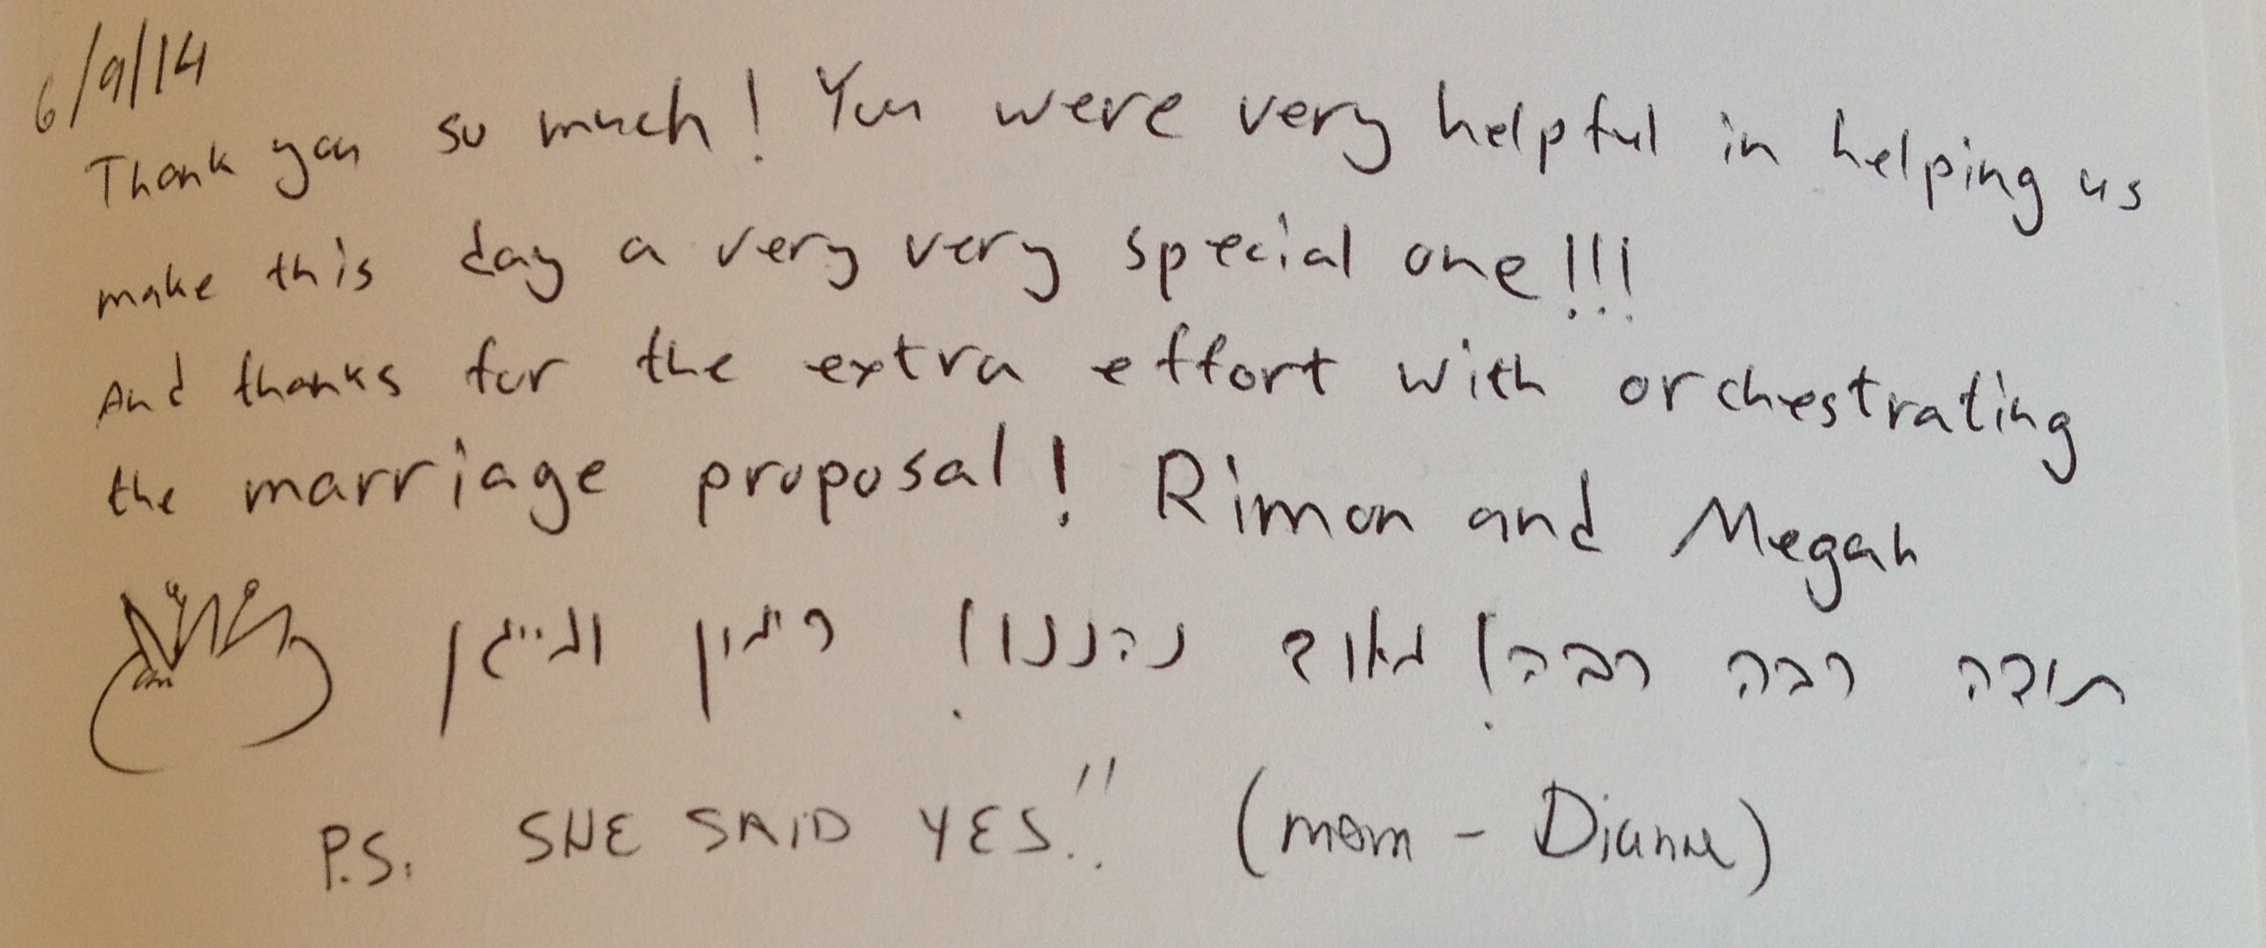 6/9/14
Thank you so much! You were very helpful in helping us
make this day a very very special one!!!
And thanks for the extra effort with orchestrating
the marriage proposal! Rimon and Megan
תודה רבה רבה! מאוד נהננו! רימון ומייגן
P.S. SHE SAID YES!! (mom - Dianne)